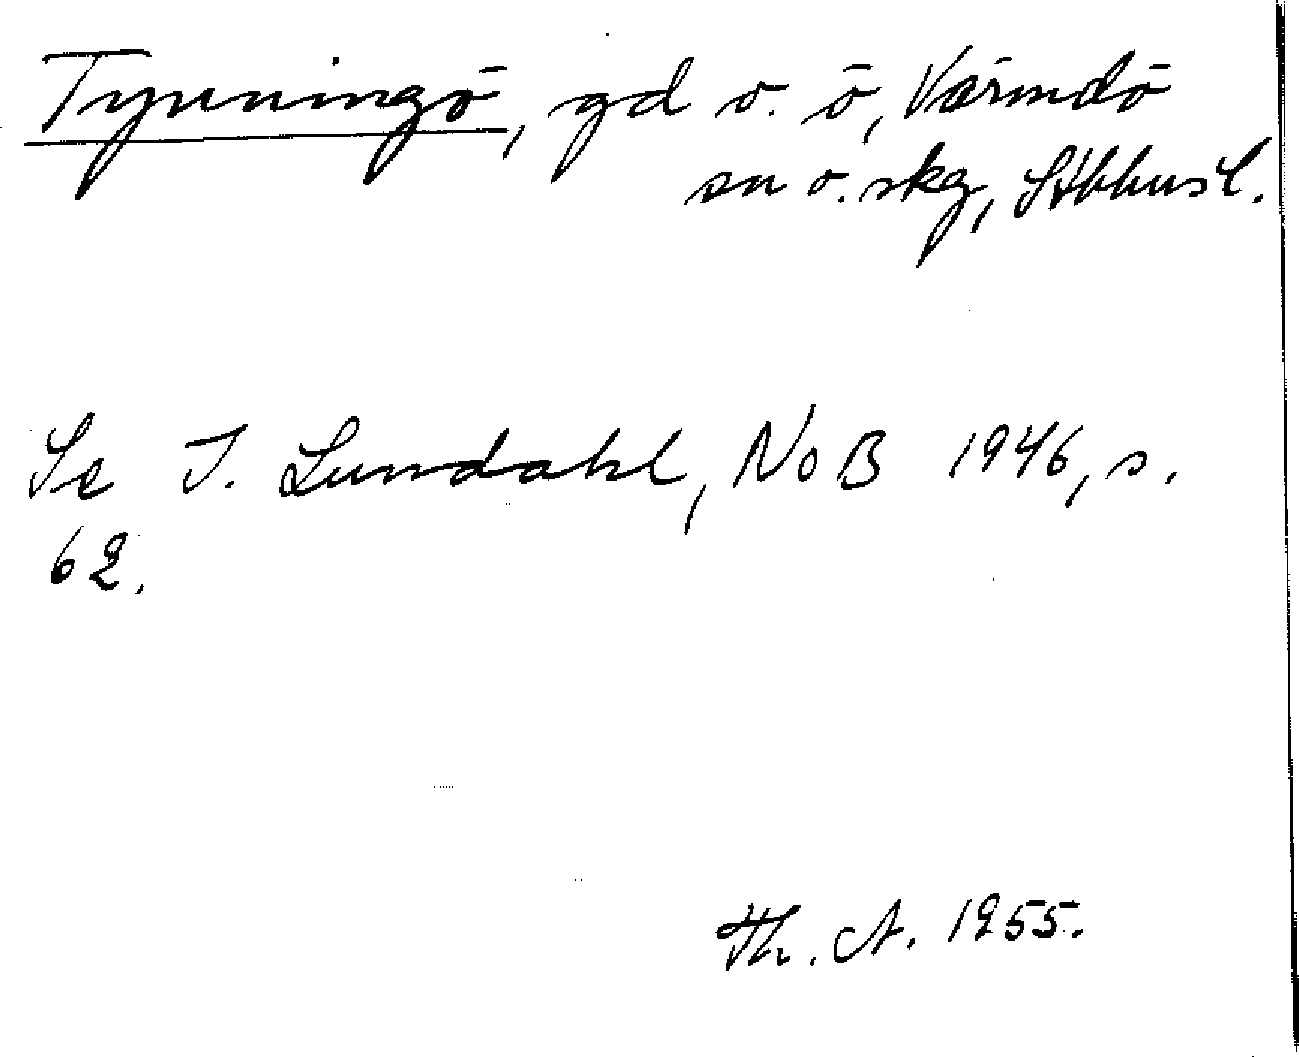 Tynningö, gd o. ö, Värmdö
sn o. skg, Sthlms l.
Se I. Lundahl, NoB 1946, s.
62.
Th. A. 1955.